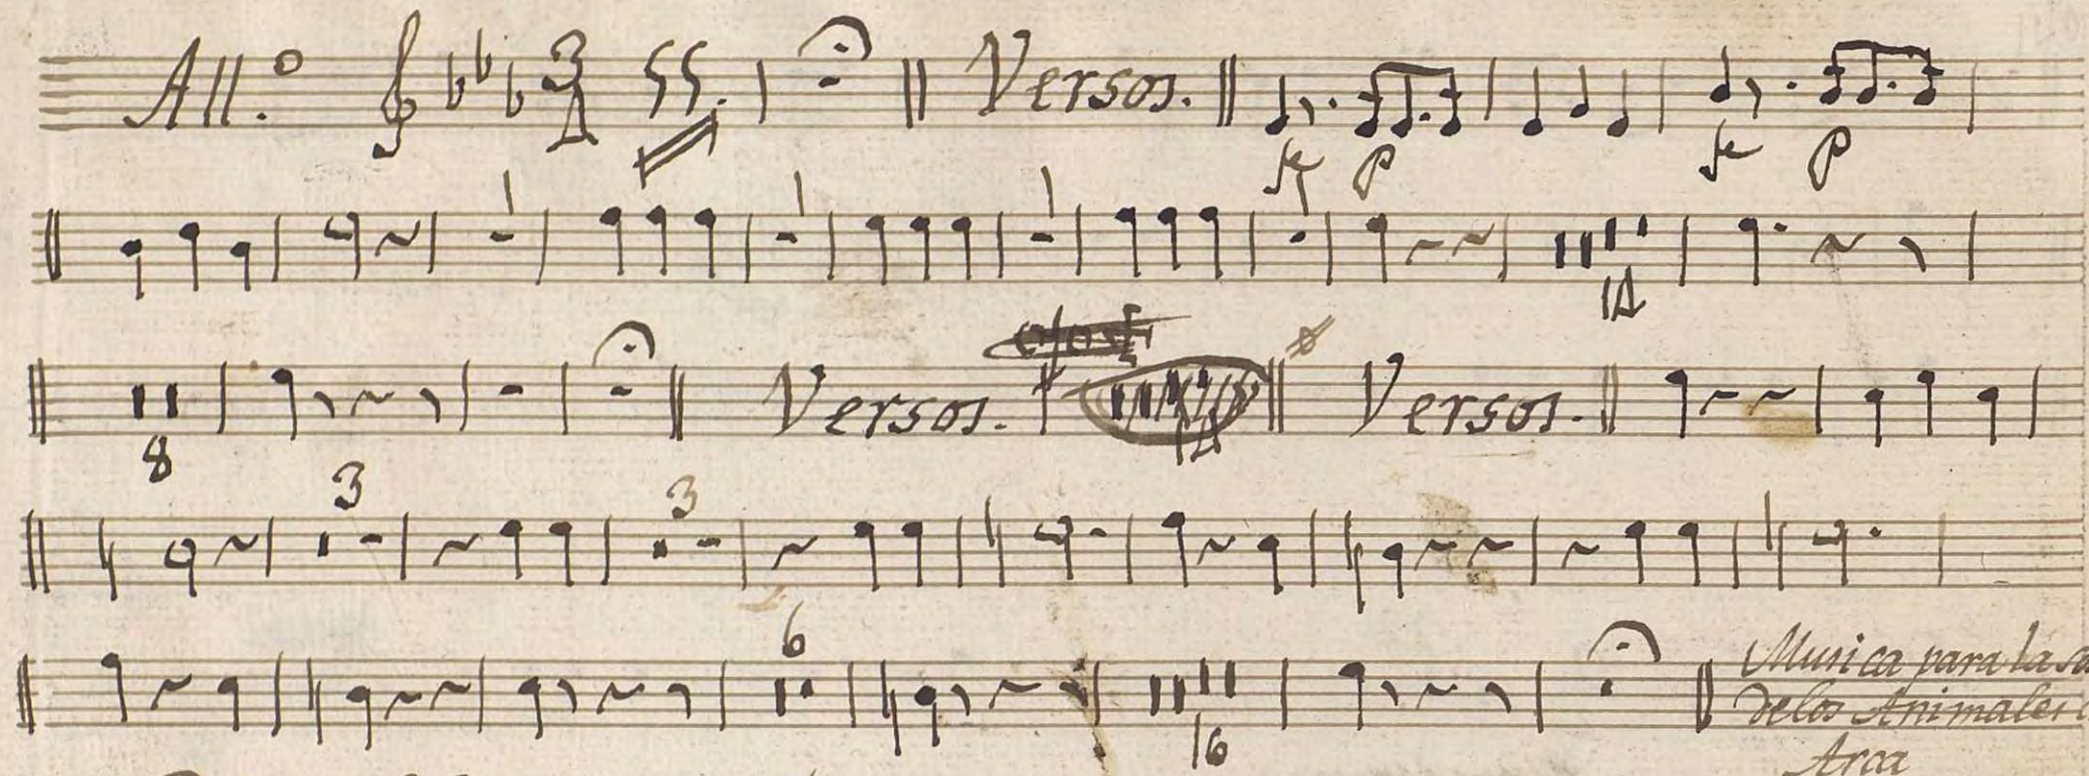 All.º 3/4 Versos.
fe p fe p
14
Versos. Versos.
8
3 3
6
16
Musica para la
de los Animales
Arca